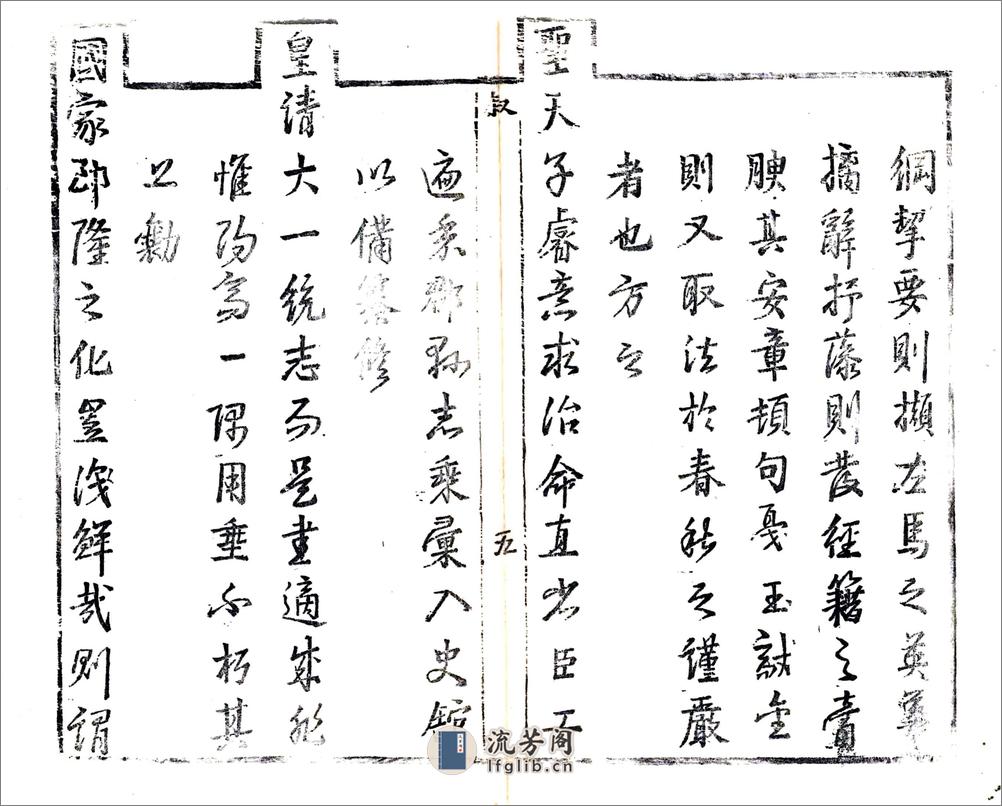 綱挈要則擷左馬之英華
摛辭抒藻則發經籍之膏
腴其安章頓句戞玉敲金
則又取法於春秋之謹嚴
者也方今
聖天子睿意求治命直省臣工
叙 五
遍采郡縣志乘彙入史館
以備纂修
皇清大一統志而是書適成非
惟陽高一隅用垂不朽其
上勷
國家郅隆之化豈淺鮮哉則謂
流芳阁
lfglib.cn